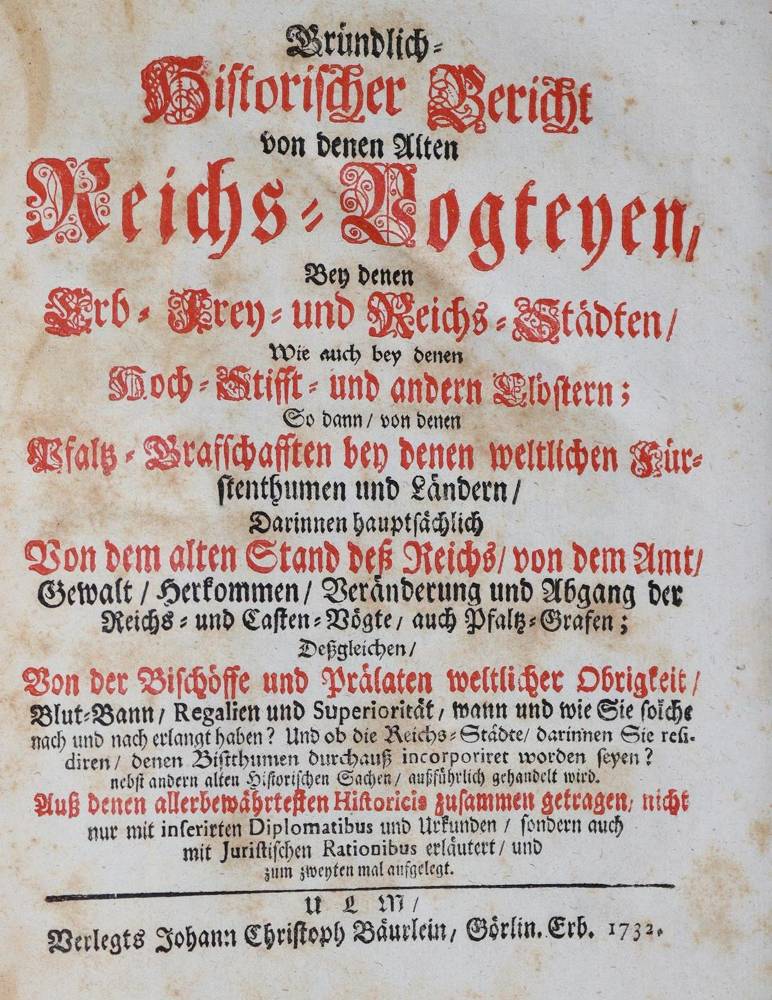 Gründlich-
Historischer Bericht
von denen Alten
Reichs-Vogteyen/
Bey denen
Erb- Frey- und Reichs-Städten/
Wie auch bey denen
Hoch-Stifft- und andern Clöstern;
So dann/ von denen
Pfaltz-Grafschafften bey denen weltlichen Für-
stenthumen und Ländern/
Darinnen hauptsächlich
Von dem alten Stand deß Reichs/ von dem Amt/
Gewalt/ Herkommen/ Veränderung und Abgang der
Reichs- und Casten-Vögte/ auch Pfaltz-Grafen;
Deßgleichen/
Von der Bischöffe und Prälaten weltlicher Obrigkeit/
Blut-Bann/ Regalien und Superiorität/ wann und wie Sie solche
nach und nach erlangt haben? Und ob die Reichs-Städte/ darinnen Sie resi-
diren/ denen Bistthumen durchauß incorporiret worden seyen?
nebst andern alten Historischen Sachen/ außführlich gehandelt wird.
Auß denen allerbewährtesten Historicis zusammen getragen/ nicht
nur mit inserirten Diplomatibus und Urkunden/ sondern auch
mit Juristischen Rationibus erläutert/ und
zum zweyten mal aufgelegt.
ULM/
Verlegts Johann Christoph Bäurlein/ Görlin. Erb. 1732.